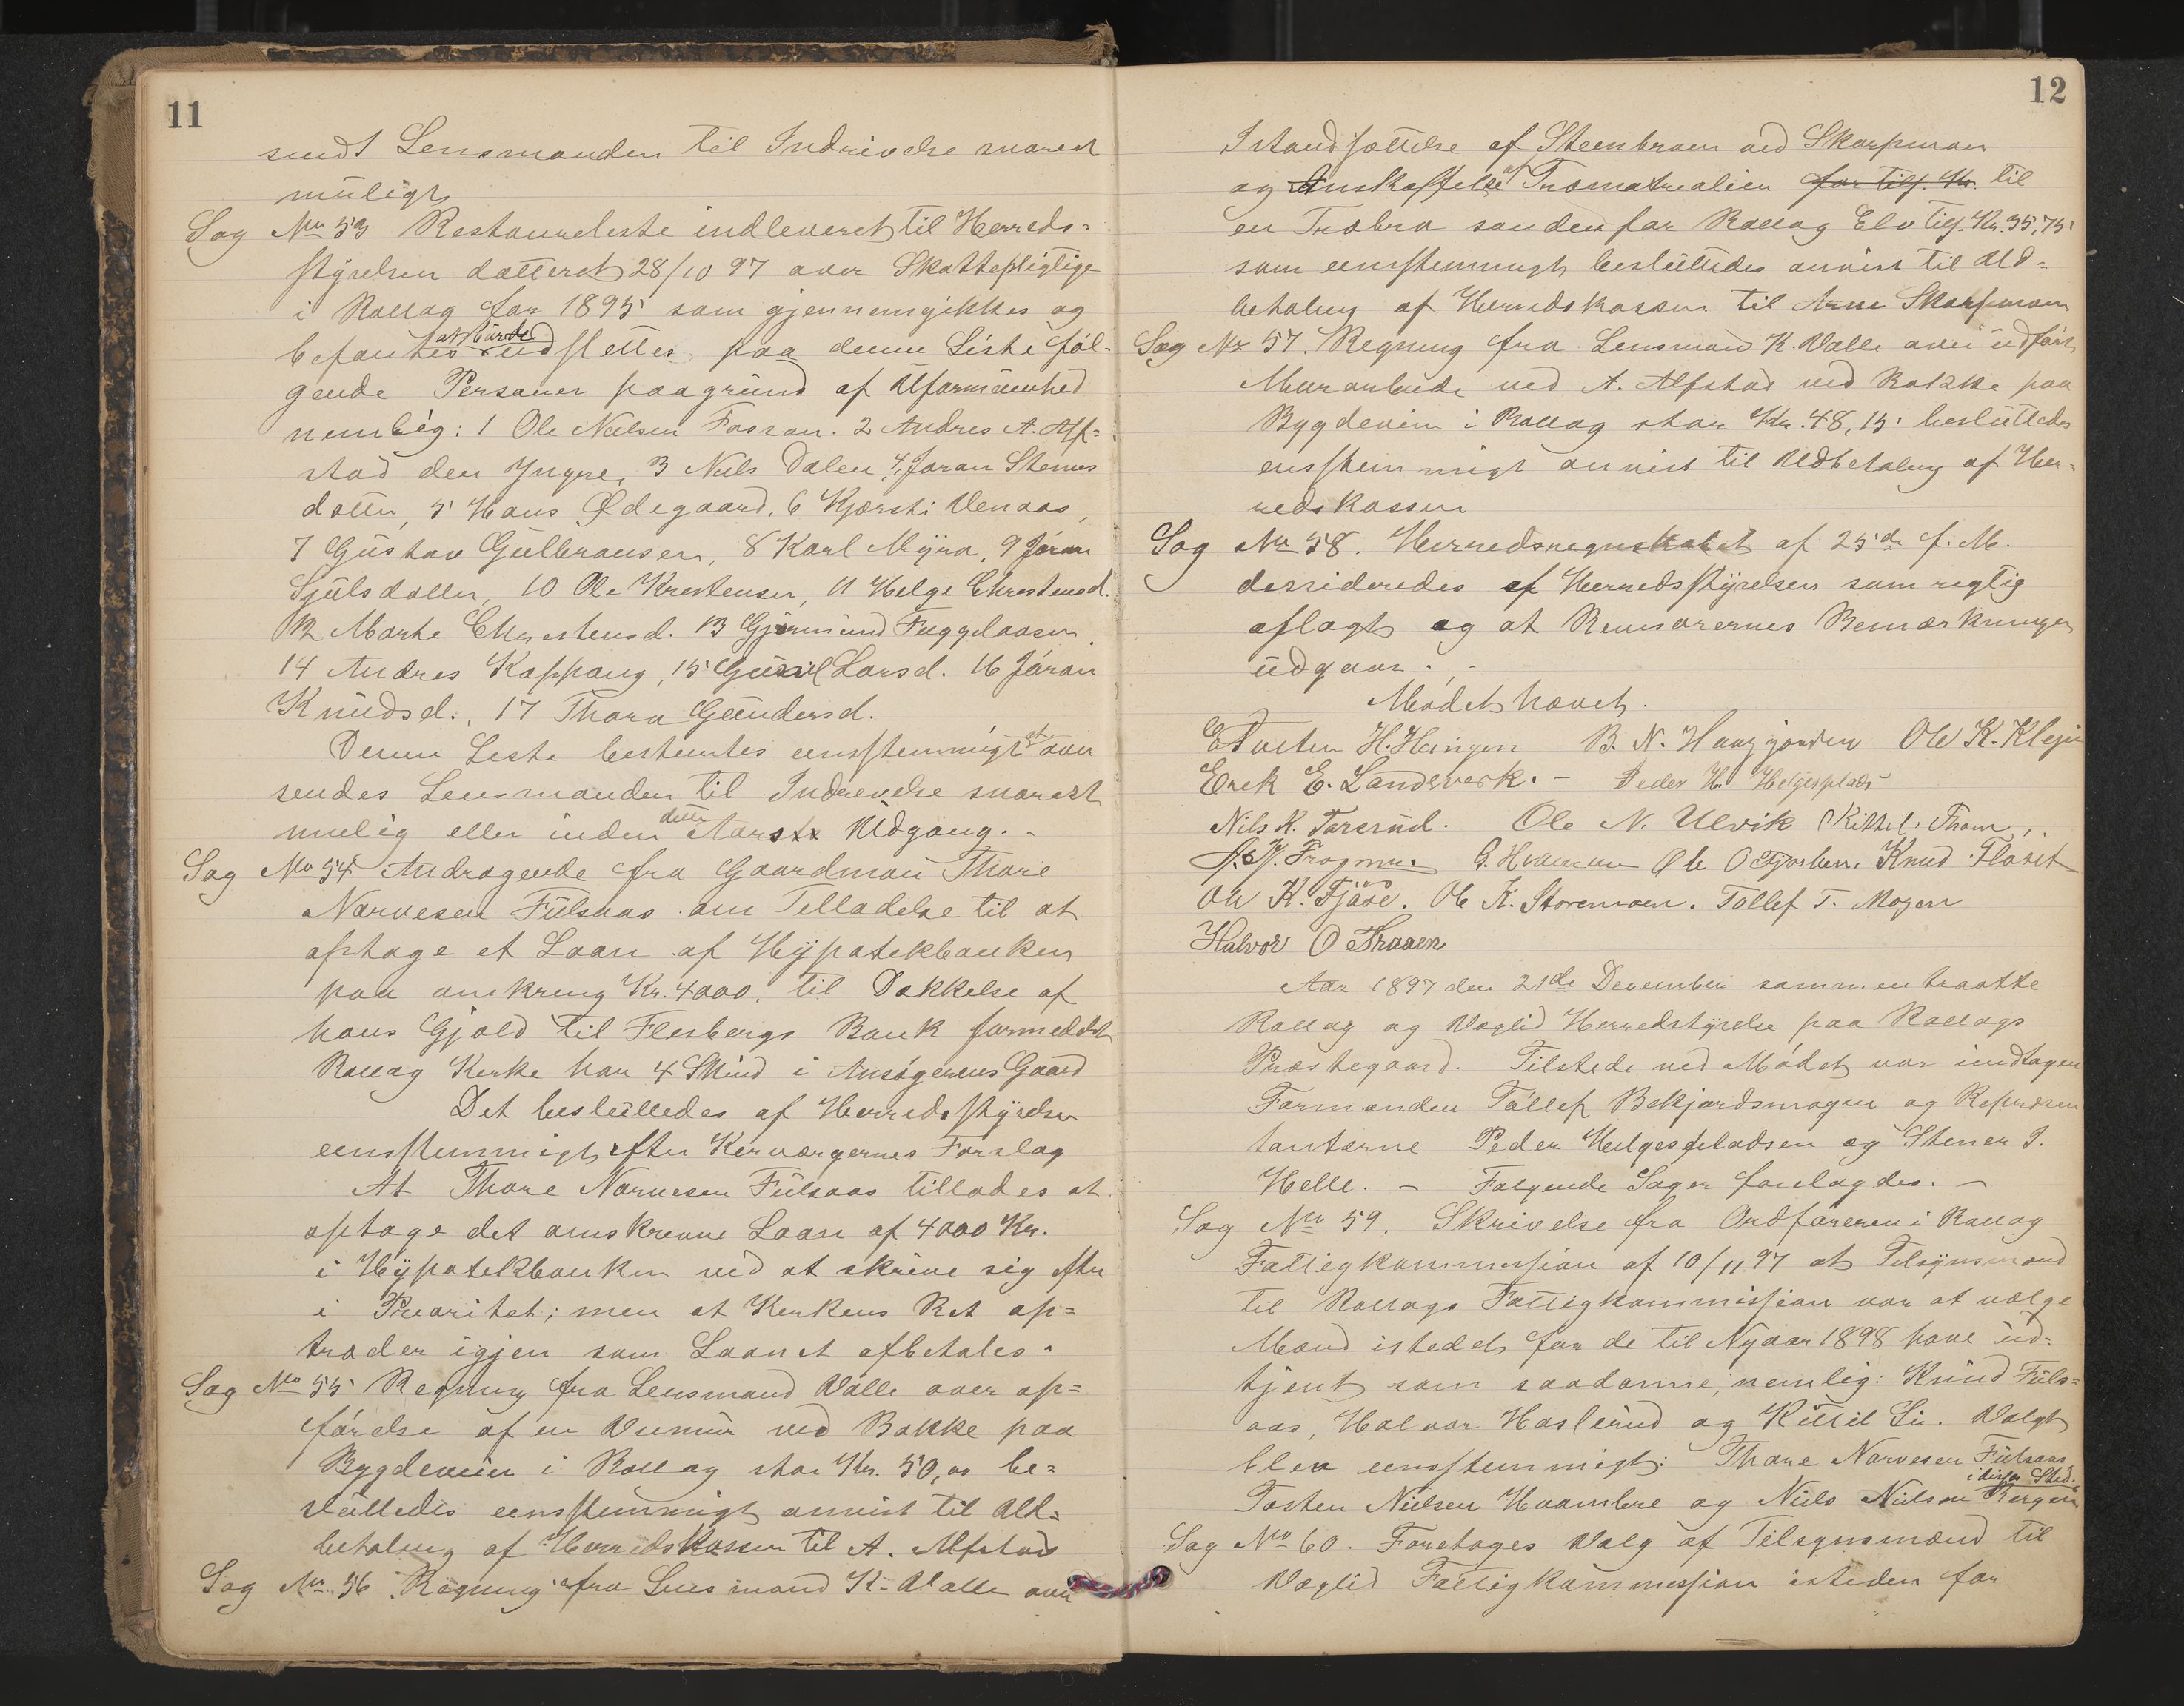 11
sendt Lensmanden til Indrivelse snarest
muligt
Sag No 53 Restanceliste indleveret til Herreds=
styrelsen datteret 28/10 97 over Skattepligtige
i Rollag for 1895 som gjennemgikkes og
befantes at burde udslettes paa denne Liste føl-
gende Personer paagrund af Uformuenhed
nemlig: 1 Ole Nielsen Fossan. 2 Andres A. Alf=
stad den Yngre, 3 Niels Dalen 4, Joran Stenes
datter, 5 Hans Ødegaard, 6 Kjersti Venaas,
7 Gustav Gulbransen, 8 Karl Myra, 9 Jøran
Sjulsdatter, 10 Ole Krestensen, 11 Helge Chrestensd.
12 Marte Chrestensd. 13 Gjermund Fuggelaasen.
14 Andres Kappaug, 15 Gunil Larsd. 16 Jøran
Knudsd., 17 Thora Gundersd.
Denne Leste bestemtes eensstemmigt at over
sendes Lensmanden til Indrevelse snarest
mulig eller inden dette Aars Udgang. -
Sag No 54 Andragende fra Gaardman Thore
Narvesen Fulsaas om Telladelse til at
optage et Laan af Hypotekbanken
paa omkreng Kr. 4000. til Dækkelse af
hans Gjæld til Flesbergs Bank formedelst
Rollag Kerke har 4 Skind i Ansøgerens Gaard
Det besluttedes af Herredsstyrelsen
eensstemmigt efter Kerværgernes Forslag
At Thore Narvesen Fulsaas tillades at
optage det omskrevne Laan af 4000 Kr.
i Hypotekbanken ved at skrive sig efter
i Preoritet; men at Kerkens Ret op=
træder igjen som Laanet afbetales.
Sag No 55 Regning fra Lensmand Valle over op=
førelse af en Veimur ved Bakke paa
Bygdeveien i Rollag stor Kr. 50,00 be=
sluttedes eensstemmigt anvist til Ud=
betaling af Herredskassen til A. Alfstad
Sag No 56 Regning fra Lensmand K. Valle over
12
Istandsættelse af Steenbroen ved Skarpmoen
og Anskaffelse af Træmatrealier for tils. Kr. til
en Træbro sønden for Rollag Elv tils. Kr. 35,75
som eensstemmigt besluttedes anvist til Ud=
betaling af Herredskassen til Arne Skarpmoen
Sag No 57. Regning fra Lensmand K. Valle over udført
Murarbeide ved A. Alfstad ved Bakke paa
Bygdeveien i Rollag stor Kr. 48,15 besluttedes
eensstemmigt anvist til Udbetaling af Her=
redskassen
Sag No 58. Herredsregnskabet af 25de f. M.
dessideredes af Herredsstyrelsen som regtig
aflagt og at Revisorernes Bemærkninger
udgaar. -
Mødet hævet.
H. Haugen B. N. Ole K. Kleju
Erek E. Landsverk. - Peder H. Helgesplads
Nils K. Tarerud. Ole N. Ulvik Kittel Thom
Fragnme G. Ole O Fjosben. Knud Floset
Ole K. Fjøse. Ole K. Storemoen. Tollef T. Mogen
Halvor O Traaen
Aar 1897 den 21de December sammentraatte
Rollag og Veglid Herredstyrelse paa Rollags
Præstegaard. Tilstede ved Mødet var indtagen
Formanden Tollef Bekjordsmogen og Repræsen
tanterne Peder Helgespladsen og Stener S.
Helle. - Følgende Sager forelagdes. -
Sag No 59. Skrivelse fra Ordføreren i Rollag
Fattigkommission af 10/11 97 at Telsynsmænd
til Rollags Fattigkommission var at vælge
Mænd istedet for de til Nyaar 1898 have ud=
tjent som saadanne, nemlig: Knud Fuls=
aas, Halvor Haslerud og Kittil Li. Valgt
blev eensstemmigt: Thore Narvesen Fulsaas,
i disses Sted.
Tosten Nielsen Hvambre og Niels Nielsen Bergan
Sag No 60. Foretages Valg af Tilsynsmænd til
Veglid Fattigkommission isteden for